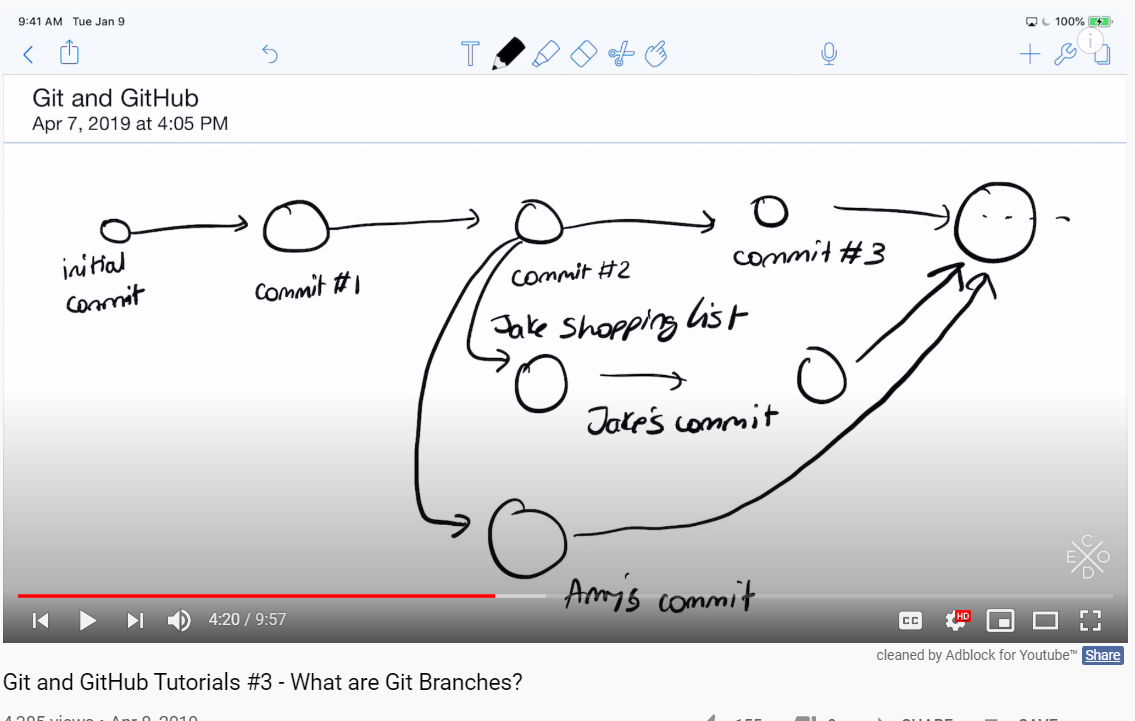 9:41 AM Tue Jan 9
100%
T
Git and GitHub
Apr 7, 2019 at 4:05 PM
initial
commit
commit #1
commit #2
commit #3
Jake shopping list
Jake's commit
Amy's commit
C
E O
D
4:20 / 9:57
CC
HD
cleaned by Adblock for Youtube™ Share
Git and GitHub Tutorials #3 - What are Git Branches?